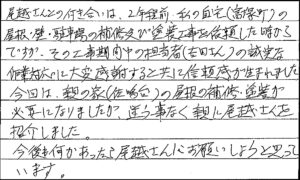 尾越さんとの付き合いは、2年程前 私の自宅(富塚町)の
屋根・壁・駐車場の補修及び塗装工事を依頼した時から
ですが、その工事期間中の担当者(右田さん)の誠実な
作業対応に大変感謝すると共に信頼感が生まれました
今回は、親の家(佐鳴台)の屋根の補修・塗装が
必要になりましたが、迷う事なく親に尾越さんを
紹介しました。
今後も何かあったら尾越さんにお願いしようと思って
います。